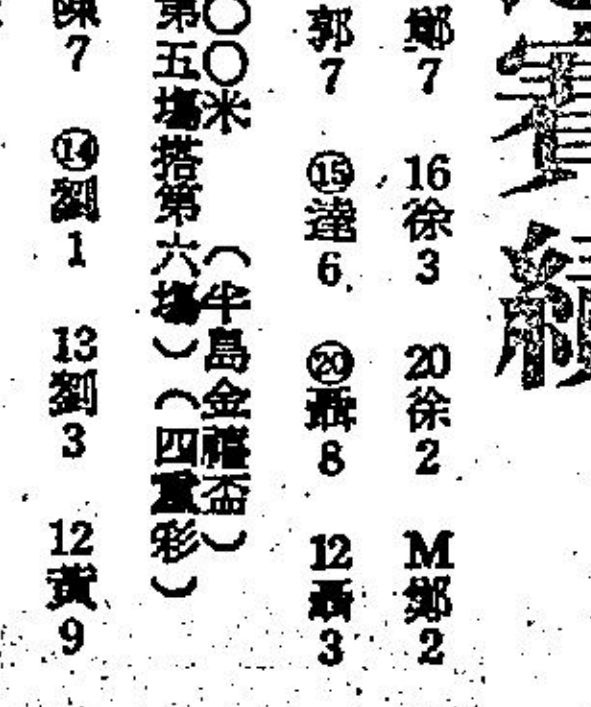 鄭7 16徐3 20徐2 M鄭2
郭7 ⑮達6 ⑳聶8 12聶3
〇〇米 （半島金禧盃）
第五場搭第六場）（四重彩）
陳7 ⑭劉1 13劉3 12黃9